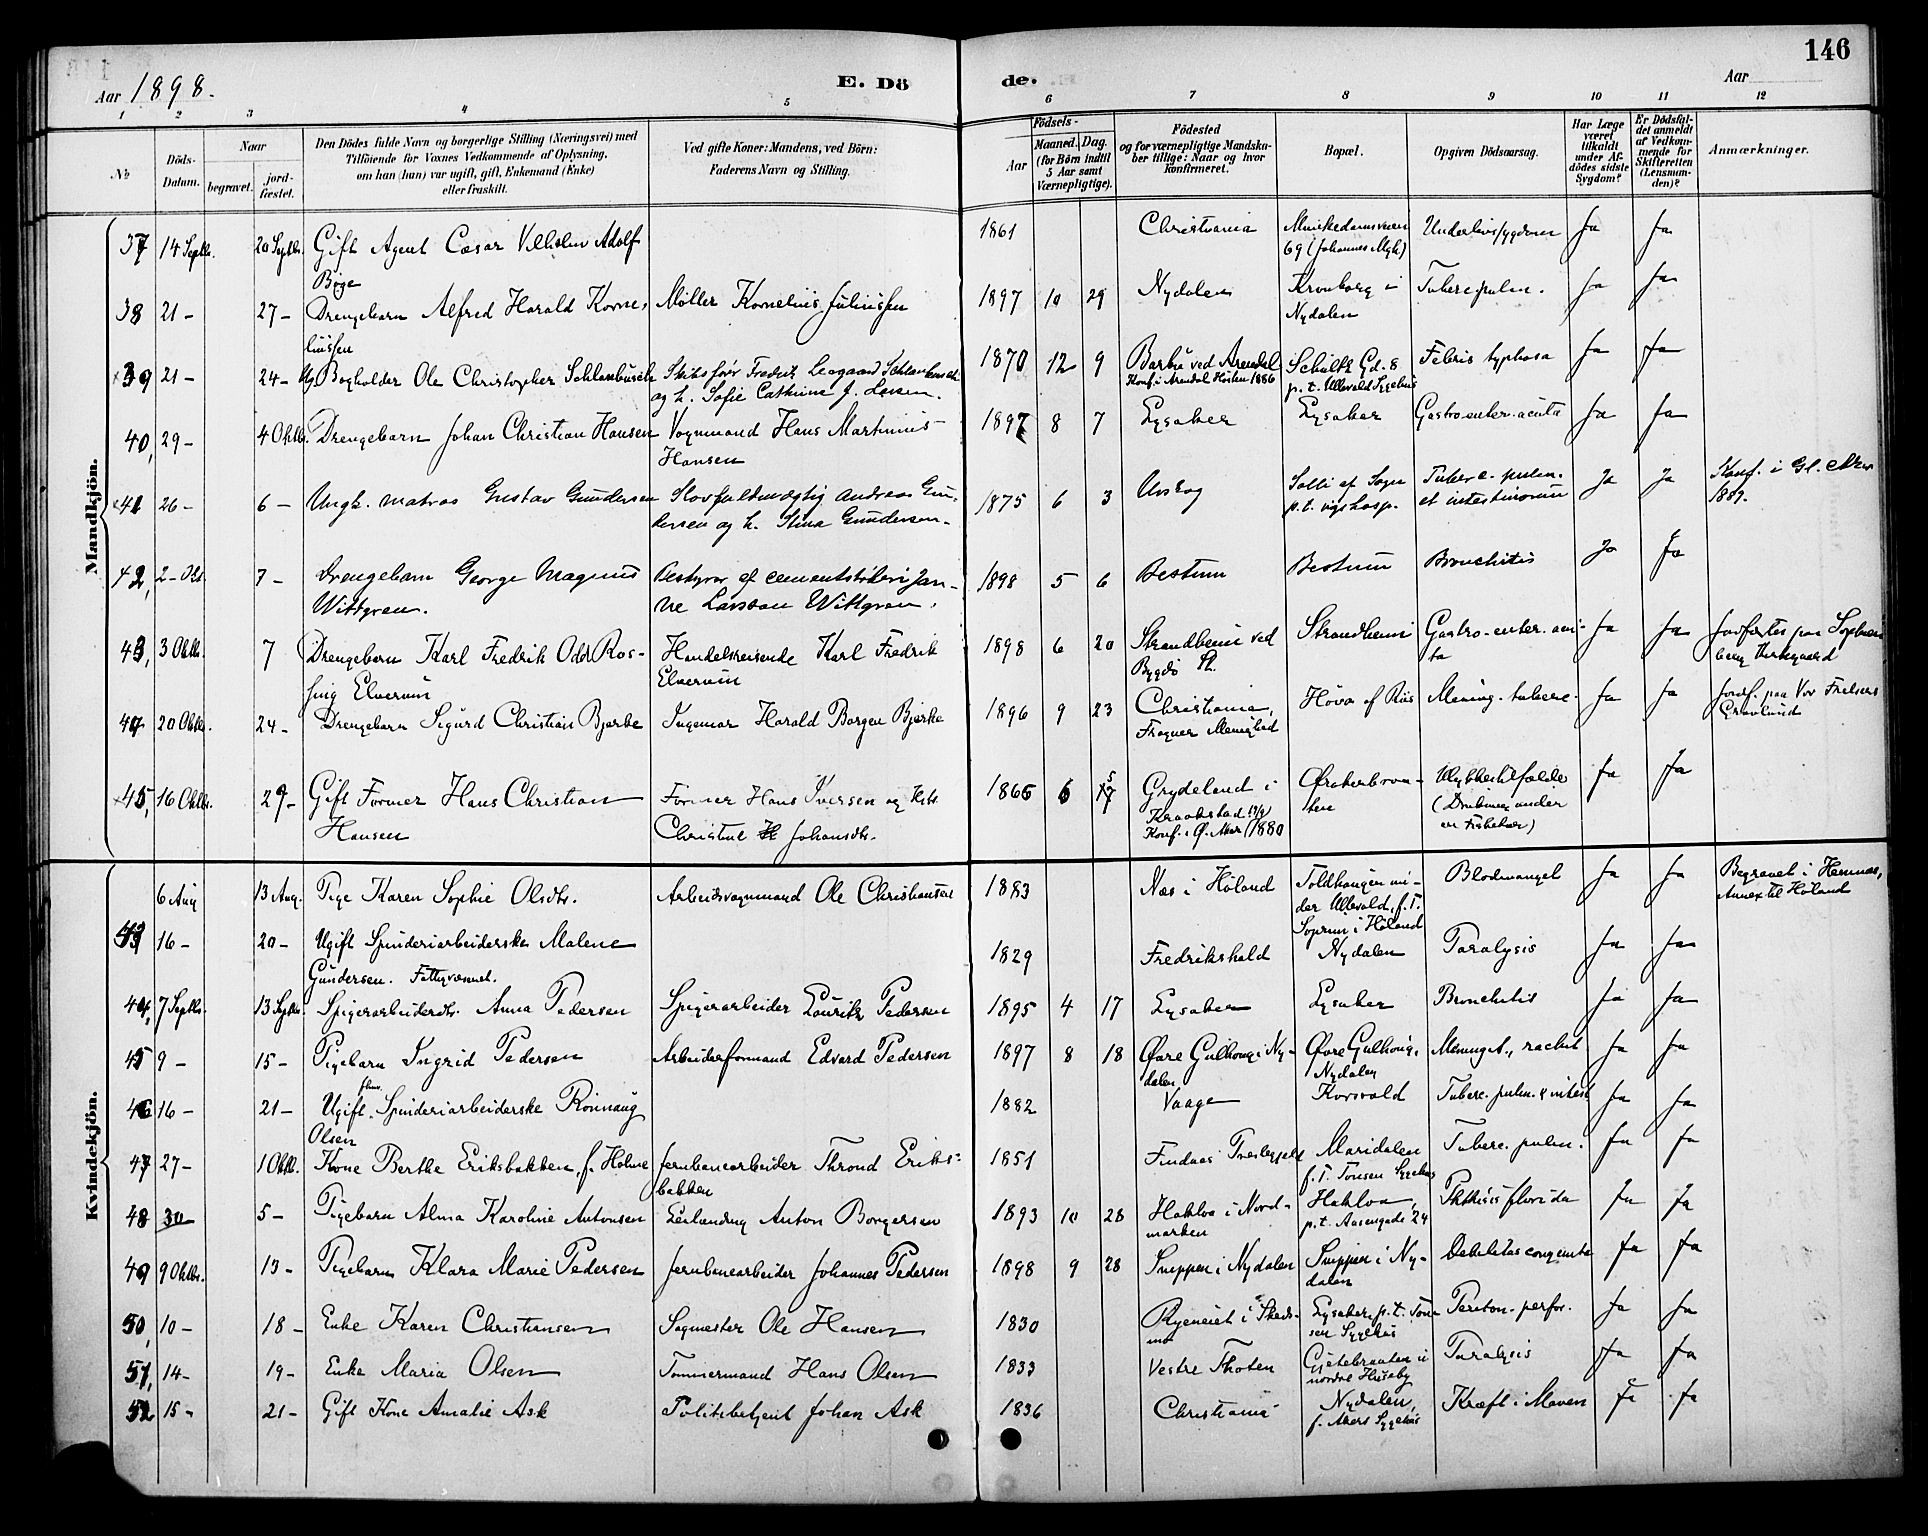 146
Aar 1898.
E. Dö
de.
Aar
1 2 3 4 5 6 7 8 9 10 11 12
No
Döds-Datum.
Naar
begravet.
jord-fæstet.
Den Dödes fulde Navn og borgerlige Stilling (Næringsvei) med
Tilföiende for Voxnes Vedkommende af Oplysning,
om han (hun) var ugift, gift, Enkemand (Enke)
eller fraskilt.
Ved gifte Koner: Mandens, ved Börn:
Faderens Navn og Stilling.
Födsels-
Aar
Maaned. Dag.
(for Börn indtil
5 Aar samt
Værnepligtige).
Födested
og for værnepligtige Mandska-
ber tillige: Naar og hvor
konfirmeret.
Bopæl.
Opgiven Dödsaarsag.
Har Læge
været
tilkaldt
under Af-
dödes sidste
Sygdom?
Er Dödsfal-
det anmeldt
af Vedkom-
mende for
Skifteretten
(Lensman-
den)?
Anmærkninger.
Mandkjön.
37 14 Septbr. 20 Septbr. Gift Agent Cæsar Vilhelm Adolf 1861 Christiania Munkedamsveien Underlivssygdom Ja Ja
Böge 69 (Johannes Mgh)
38 21 - 27 - Drengebarn Alfred Harald Korne- Møller Kornelius Juliussen 1897 10 29 Nydalen Kronborg i Tuberc. pulm. Ja Ja
liussen Nydalen
×39 21 - 24 - Ug. Bogholder Ole Christopher Schlanbusch Skibsfører Fredrik Leegaard Schlanbusch 1870 12 9 Barbu ved Arendal Schultz Gd. 8 Febris typhosa Ja Ja
og h. Sofie Cathrine J. Larsen. Konf. i Arendal Høsten 1886 p. t. Ullevold Sygehus
40, 29 - 4 Oktb. Drengebarn Johan Christian Hansen Vognmand Hans Martinius 1897 8 7 Lysaker Lysaker Gastro enter. acuta Ja Ja
Hansen
×41 26 - 6 - Ungk. matros Gustav Gundersen Skovfuldmægtig Andreas Gun- 1875 6 3 Urskog Solli af Sogn Tuberc. pulm. Ja Ja Konf. i Gl. Aker
dersen og h. Stina Gundersen. p.t. rigshosp. et intestinorum 1889.
42, 2 - Okt. 7 - Drengebarn George Magnus Bestyrer af cementstøberi Jan- 1898 5 6 Bestum Bestum Bronchitis Ja Ja
Wittgren. ne Larsson Wittgren.
43, 3 Oktb. 7 Drengebarn Karl Fredrik Odd Ros- Handelsreisende Karl Fredrik 1898 6 20 Strandheim ved Strandheim Gastro-enter. acu- Ja Ja Jordfæstes paa Sophien-
sing Elvervin Elvervin Bygdö St. ta berg Kirkegaard
44 20 Oktb. 24 - Drengebarn Sigurd Christian Bjerke Ingeniør Harald Borgen Bjerke 1896 9 23 Christiania, Höva af Riis Mening. tuberc. Ja Ja Jordf. paa Vor Frelsers
Frogner Menighed Gravlund
×45, 16 Oktbr. 29 - Gift Former Hans Christian Former Hans Iversen og Hstr. 1866 6 17 Grydeland i Ørakerbraa- Ulykkestilfælde Ja Ja
Hansen Christine Johansdtr. Kraakstad ten (Drukning under
Konf. i Ø. Aker 1880 en Fisketur)
Kvindekjön.
6 Aug 13 Aug. Pige Karen Sophie Olsdtr. Arbeidsvognmand Ole Christiansen 1883 Næs i Höland Toldhaugen un- Blodmangel Ja Ja Begravet i Hemnæs,
der Ullevold, f.T. Annex til Höland
Soprim i Höland
43 16 - 20 - Ugift Spinderiarbeiderske Malene 1829 Fredrikshald Nydalen Paralysis Ja Ja
Gundersen. Fattigvæsenet.
44, 7 Septbr. 13 Septbr. Spigerarbeiderdtr. Anna Pedersen Spigerarbeider Louritz Pedersen 1895 4 17 Lysaker Lysaker Bronchitis Ja Ja
45 9 - 15 - Pigebarn Ingrid Pedersen Arbeiderformand Edvard Pedersen 1897 8 18 Øvre Gulhoug i Ny- Øvre Gulhoug, Mening. t., rachit. Ja Ja
dalen Nydalen
46 16 - 21 - Ugift. Spinderiarbeiderske Rönnaug 1882 Vaage Korsvold Tuberc. pulm. & intest. Ja Ja
Olsen
47 27 - 1 Oktb. Kone Berthe Eriksbakken, f. Holme Jernbanearbeider Thrond Eriks- 1851 Findaas Maridalen Tuberc. pulm. Ja Ja
bakken f.T. Tonsen Sygehus
48 30 5 - Pigebarn Alma Karoline Antonsen Anton Borgersen 1893 10 28 Hakloa i Nord- Hakloa, Phthisis florida Ja Ja
marken p.t. Aasengade 24
49 9 Oktbr. 13 - Pigebarn Klara Marie Pedersen Jernbanearbeider Johannes Pedersen 1898 9 28 Snippen i Nydalen Snippen i Ny- Debilitas congenita Ja Ja
dalen
50, 10 - 18 - Enke Karen Christiansen Sagmester Ole Hansen 1830 Ryeneiet i Skeds- Lysaker, p.t. Ton- Periton. perfor. Ja Ja
mo sen Sygehus
51, 14 - 19 - Enke Maria Olsen Tømmermand Hans Olsen 1833 Vestre Thoten Gjetebraaten u Paralysis Ja Ja
nordre Huseby
52 15 - 21 - Gift Kone Amalie Ask Politibetjent Johan Ask 1836 Christiania Nydalen, Kræft i Maven Ja Ja
f. Akers Sygehus